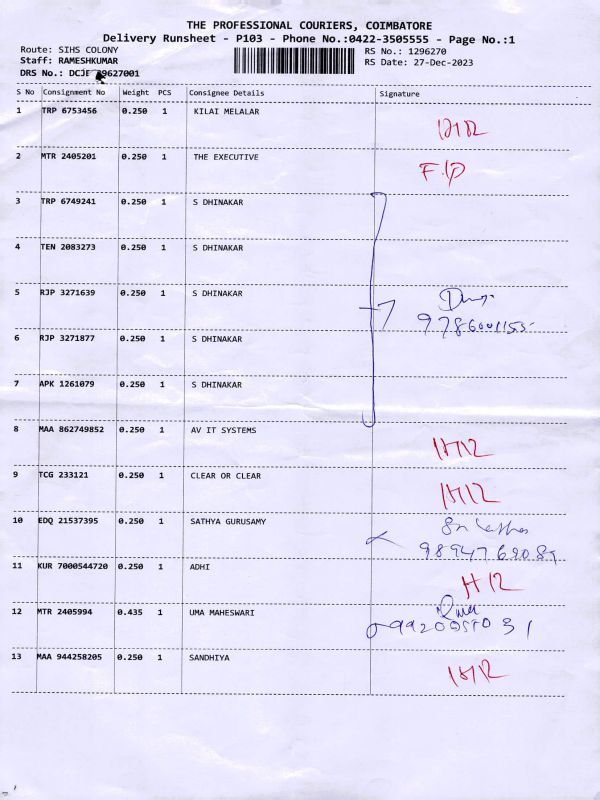 THE PROFESSIONAL COURIERS, COIMBATORE
Delivery Runsheet - P103 - Phone No.:0422-3505555 - Page No.:1
Route: SIHS COLONY
RS No.: 1296270
Staff: RAMESHKUMAR
RS Date: 27-Dec-2023
DRS No.: DCJF 9627001
S No Consignment No Weight PCS Consignee Details Signature
1 TRP 6753456 0.250 1 KILAI MELALAR
2 MTR 2405201 0.250 1 THE EXECUTIVE
3 TRP 6749241 0.250 1 S DHINAKAR
4 TEN 2083273 0.250 1 S DHINAKAR
5 RJP 3271639 0.250 1 S DHINAKAR
6 RJP 3271877 0.250 1 S DHINAKAR
7 APK 1261079 0.250 1 S DHINAKAR
8 MAA 862749852 0.250 1 AV IT SYSTEMS
9 TCG 233121 0.250 1 CLEAR OR CLEAR
10 EDQ 21537395 0.250 1 SATHYA GURUSAMY
11 KUR 7000544720 0.250 1 ADHI
12 MTR 2405994 0.435 1 UMA MAHESWARI
13 MAA 944258205 0.250 1 SANDHIYA